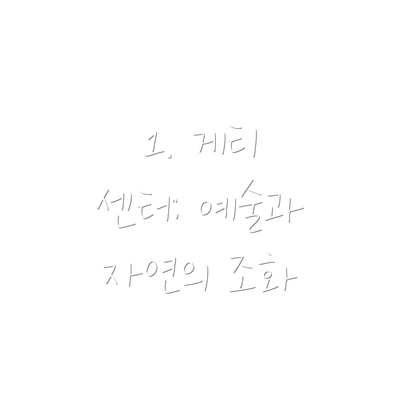 1. 게티
센터: 예술과
자연의 조화